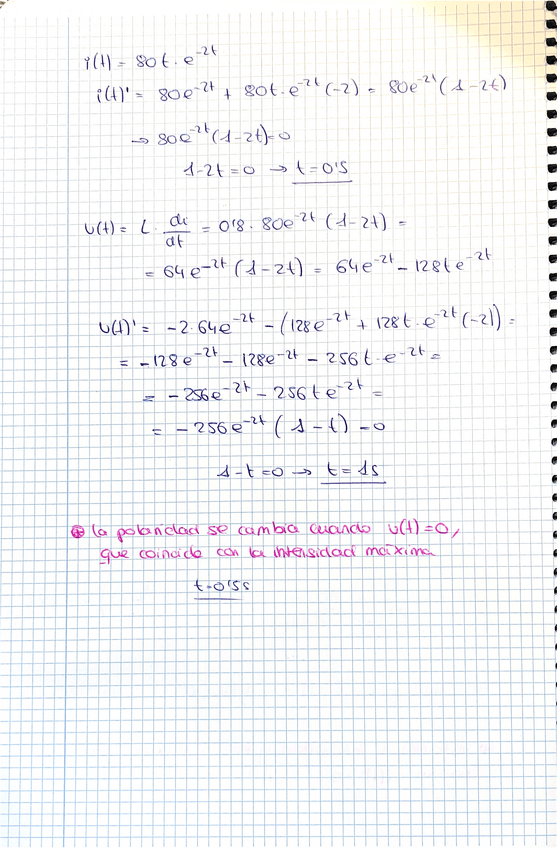 i(t) = 80t · e^-2t
i(t)' = 80e^-2t + 80t · e^-2t (-2) = 80e^-2t (1-2t)
→ 80e^-2t (1-2t)=0
1-2t = 0 → t = 0'5
u(t) = L · di/dt = 0'8 · 80e^-2t (1-2t) =
= 64e^-2t (1-2t) = 64e^-2t - 128te^-2t
u(t)' = -2·64e^-2t - (128e^-2t + 128t · e^-2t (-2)) =
= -128e^-2t - 128e^-2t - 256t · e^-2t =
= -256e^-2t - 256te^-2t =
= -256e^-2t (1-t) = 0
1-t = 0 → t = 1s
⊕ la polaridad se cambia cuando u(t)=0,
que coincide con la intensidad máxima
t=0'5s